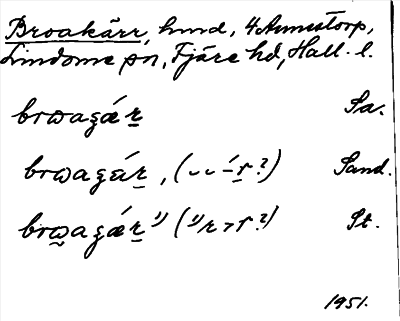 Broakärr, hmd, 4 Annestorp,
Lindome sn, Fjäre hd, Hall. l.
brωagǽr Sa.
brωagǽr, (⌣⌣–́ r?) Sand.
brωagǽr ¹⁾ (¹⁾ r > r?) St.
1951.